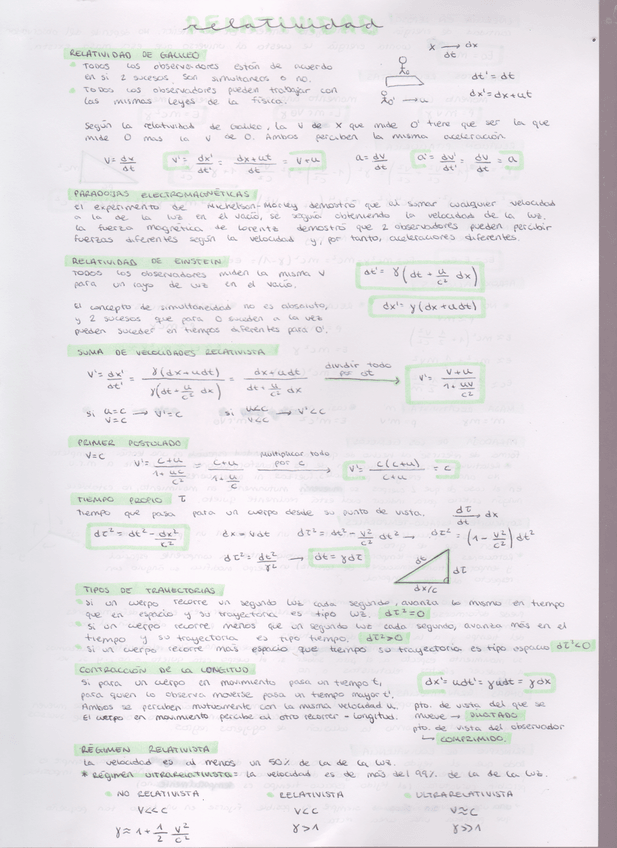 relatividad
RELATIVIDAD DE GALILEO
• Todos los observadores están de acuerdo
en si 2 sucesos son simultáneos o no.
• Todos los observadores pueden trabajar con
las mismas leyes de la física.
x → dx
dt
O' → u
dt' = dt
dx' = dx + ut
Según la relatividad de Galileo, la v de x que mide O' tiene que ser la que
mide O más la v de O. Ambos perciben la misma aceleración.
v = dx/dt   v' = dx'/dt' = dx+ut/dt = v+u   a = dv/dt   a' = dv'/dt' = dv/dt = a
PARADOJAS ELECTROMAGNÉTICAS
El experimento de Michelson-Morley demostró que al sumar cualquier velocidad
a la de la luz en el vacío, se seguía obteniendo la velocidad de la luz.
La fuerza magnética de Lorentz demostró que 2 observadores pueden percibir
fuerzas diferentes según la velocidad y, por tanto, aceleraciones diferentes.
RELATIVIDAD DE EINSTEIN
Todos los observadores miden la misma v
para un rayo de luz en el vacío.
dt' = γ(dt + u/c² dx)
dx' = γ(dx + udt)
El concepto de simultaneidad no es absoluto,
y 2 sucesos que para O suceden a la vez
pueden suceder en tiempos diferentes para O'.
SUMA DE VELOCIDADES RELATIVISTA
v' = dx'/dt' = γ(dx+udt)/γ(dt+u/c² dx) = dx+udt/dt+u/c² dx   dividir todo por dt →   v' = v+u/1+uv/c²
si u=c v=c → v'=c   si u<c v<c → v'<c
PRIMER POSTULADO
v=c   v' = c+u/1+uc/c² = c+u/1+u/c   multiplicar todo por c →   v' = c(c+u)/c+u = c
TIEMPO PROPIO τ
Tiempo que pasa para un cuerpo desde su punto de vista.   dτ/dt → dx
dτ² = dt² - dx²/c²   dx = vdt   dτ² = dt² - v²/c² dt² → dτ² = (1 - v²/c²) dt²
dτ² = dt²/γ² → dt = γdτ   dt   dτ
dx/c
TIPOS DE TRAYECTORIAS
• Si un cuerpo recorre un segundo luz cada segundo, avanza lo mismo en tiempo
que en espacio y su trayectoria es tipo luz. dτ²=0
• Si un cuerpo recorre menos que un segundo luz cada segundo, avanza más en el
tiempo y su trayectoria es tipo tiempo. dτ²>0
• Si un cuerpo recorre más espacio que tiempo su trayectoria es tipo espacio dτ²<0
CONTRACCIÓN DE LA LONGITUD
Si para un cuerpo en movimiento pasa un tiempo t,
para quien lo observa moverse pasa un tiempo mayor t'.
Ambos se perciben mutuamente con la misma velocidad u.
El cuerpo en movimiento percibe al otro recorrer - longitud.
dx' = udt' = γudt = γdx
pto. de vista del que se
mueve → DILATADO
pto. de vista del observador
↳ COMPRIMIDO.
RÉGIMEN RELATIVISTA
La velocidad es al menos un 50% de la de la luz.
* Régimen ultrarelativista = la velocidad es de más del 99% de la de la luz.
• NO RELATIVISTA   • RELATIVISTA   • ULTRARELATIVISTA
v<<c   v<c   v≈c
γ ≈ 1 + 1/2 v²/c²   γ>1   γ>>1